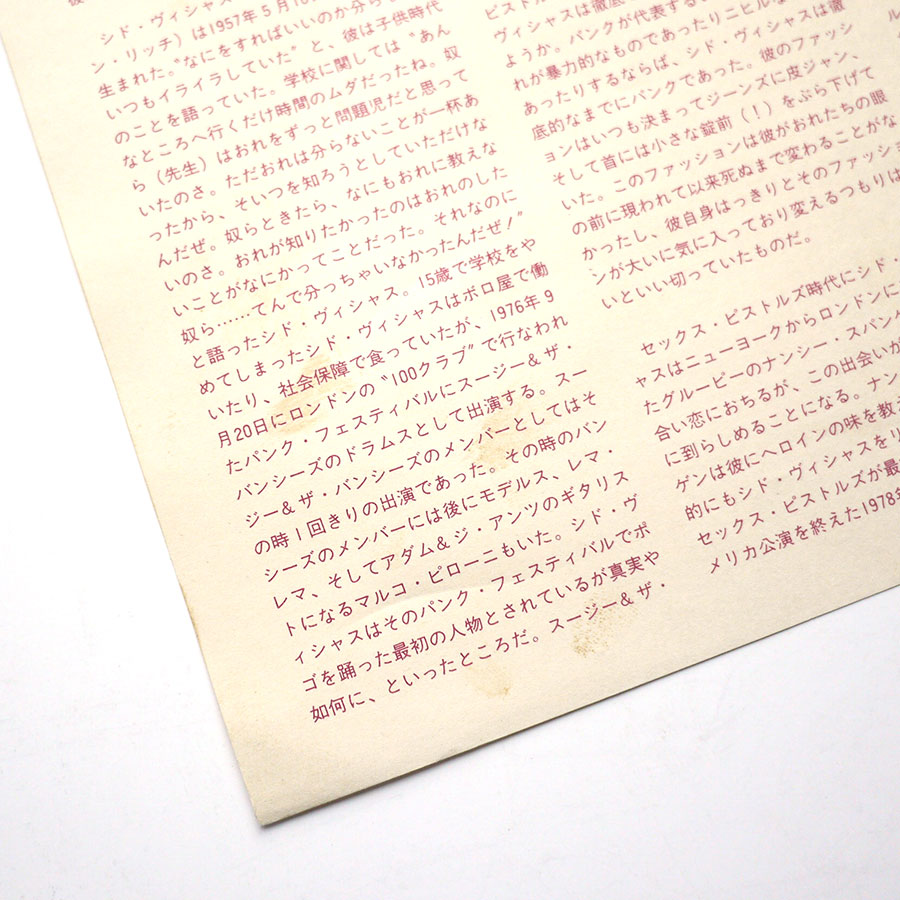 シド・ヴィシャス
ン・リッチ）は1957年5月10
生まれた。“なにをすればいいのか分ら
いつもイライラしていた”と、彼は子供時代
のことを語っていた。学校に関しては“あん
なところへ行くだけ時間のムダだったね。奴
ら（先生）はおれをずっと問題児だと思って
いたのさ。ただおれは分らないことが一杯あ
ったから、そいつを知ろうとしていただけな
んだぜ。奴らときたら、なにもおれに教えな
いのさ。おれが知りたかったのはおれのした
いことがなにかってことだった。それなのに
奴ら……てんで分っちゃいなかったんだぜ！”
と語ったシド・ヴィシャス。15歳で学校をや
めてしまったシド・ヴィシャスはボロ屋で働
いたり、社会保障で食っていたが、1976年9
月20日にロンドンの“100クラブ”で行なわれ
たパンク・フェスティバルにスージー＆ザ・
バンシーズのドラムスとして出演する。スー
ジー＆ザ・バンシーズのメンバーとしてはそ
の時1回きりの出演であった。その時のバン
シーズのメンバーには後にモデルス、レマ・
レマ、そしてアダム＆ジ・アンツのギタリス
トになるマルコ・ピローニもいた。シド・ヴ
ィシャスはそのパンク・フェスティバルでポ
ゴを踊った最初の人物とされているが真実や
如何に、といったところだ。スージー＆ザ・
ピストル
ヴィシャスは徹底
ようか。パンクが代表する
れが暴力的なものであったりニヒルな
あったりするならば、シド・ヴィシャスは徹
底的なまでにパンクであった。彼のファッシ
ョンはいつも決まってジーンズに皮ジャン、
そして首には小さな錠前（！）をぶら下げて
いた。このファッションは彼がおれたちの眼
の前に現われて以来死ぬまで変わることがな
かったし、彼自身はっきりとそのファッショ
ンが大いに気に入っており変えるつもりは
いといい切っていたものだ。
セックス・ピストルズ時代にシド・
ャスはニューヨークからロンドンに
たグルーピーのナンシー・スパンゲ
合い恋におちるが、この出会いが
に到らしめることになる。ナン
ゲンは彼にヘロインの味を教え
的にもシド・ヴィシャスをリ
セックス・ピストルズが最
メリカ公演を終えた1978年